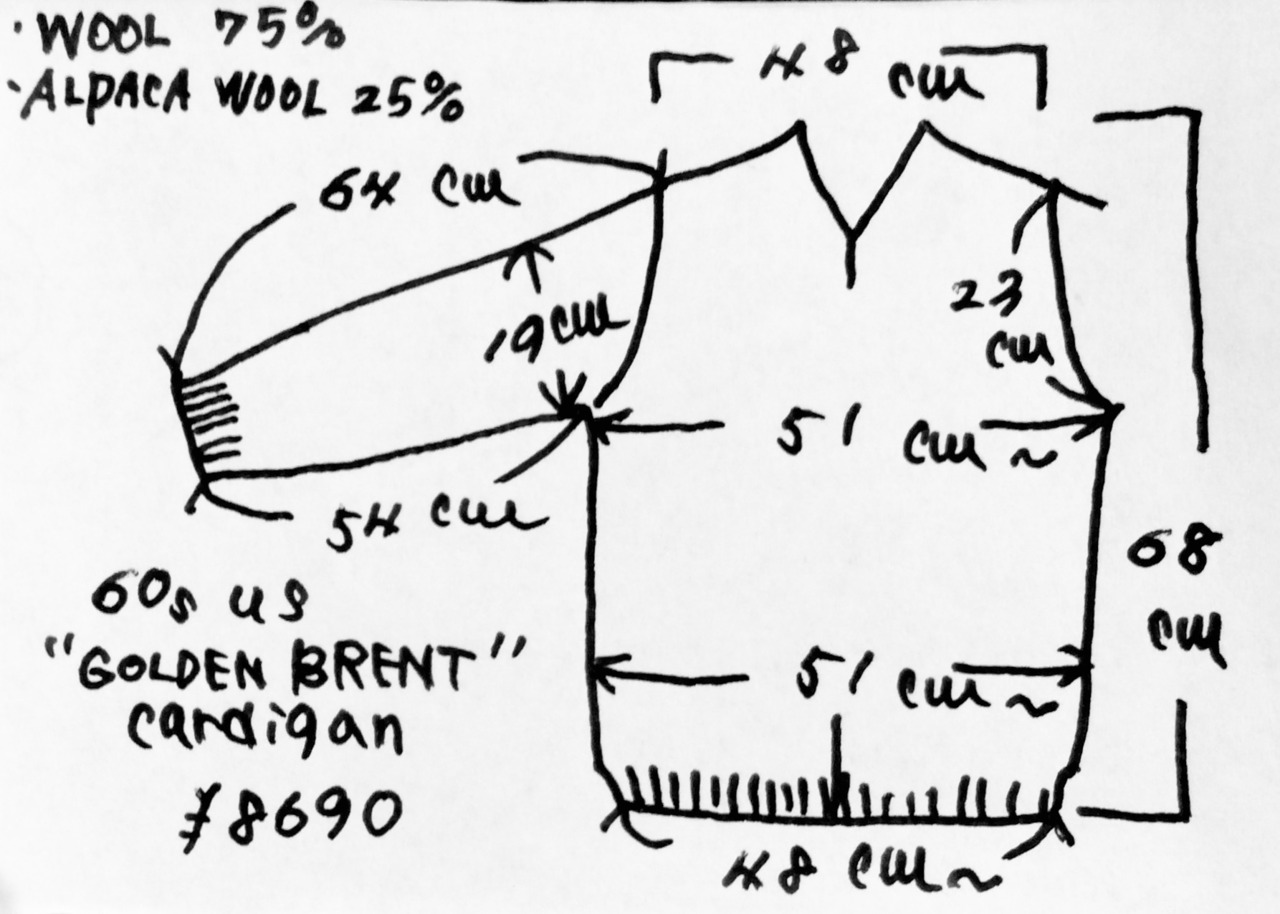 · WOOL 75%
· ALPACA WOOL 25%
48 cm
64 cm
19 cm
23
cm
51 cm ~
54 cm
68
cm
60s US
"GOLDEN BRENT"
cardigan
¥8690
51 cm ~
48 cm ~